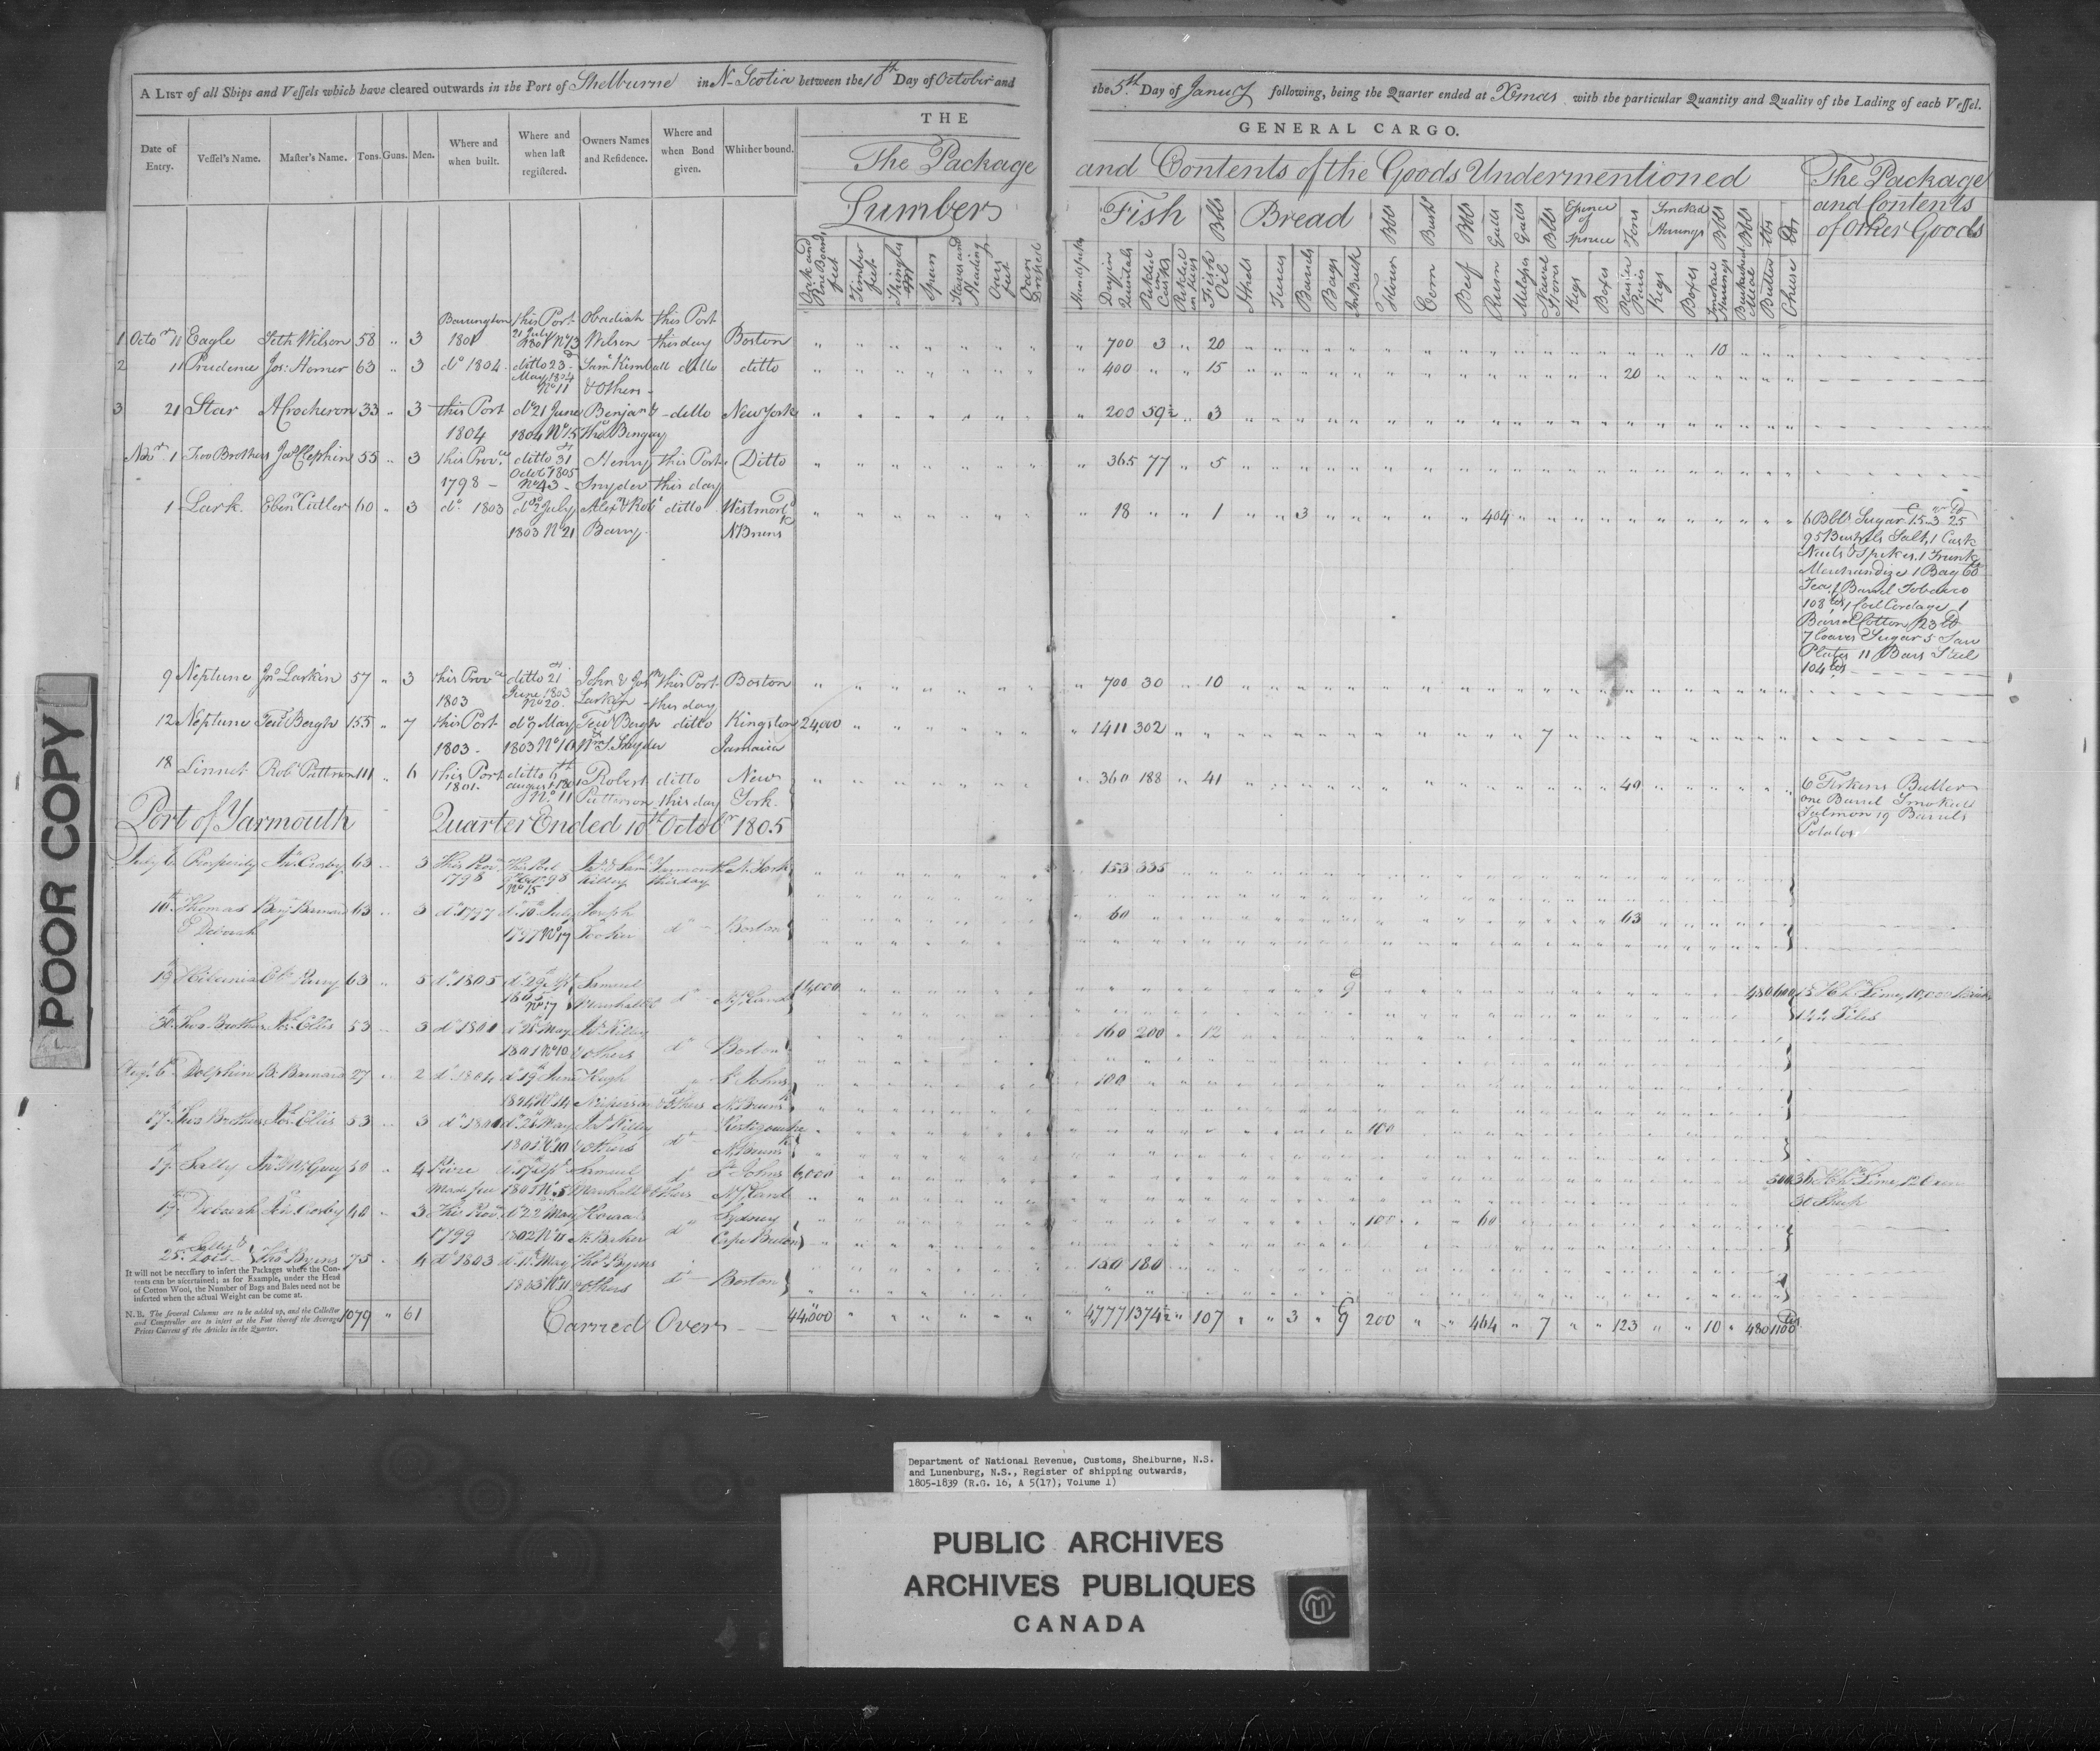 A LIST of all Ships and Vessels which have cleared outwards in the Port of Shelburne in N-Scotia between the 10th Day of October and
the 5th Day of Janury following, being the Quarter ended at Xmas with the particular Quantity and Quality of the Lading of each Vessel.
THE
GENERAL CARGO.
Date of Entry. Vessel's Name. Master's Name. Tons. Guns. Men. Where and when built. Where and when last registered. Owners Names and Residence. Where and when Bond given. Whither bound.
The Package
and Contents of the Goods Undermentioned
The Package
and Contents
of Other Goods
Lumber
Fish Bbls Bread Bbls Bush Bbls Galls Galls Bbls Essence of Spruce Tons Smoked Herrings Bbls Bbls lbs lbs
Oak and Pine Boards feet Timber feet Shingles Spars Staves and Heading Oars feet
Dry in Quintals Pickled in Casks Pickled in Kegs Fish Oil Hhds Barrels Bags In Bulk Flour Corn Beef Rum Molasses Naval Stores Kegs Boxes Plaister Paris Kegs Boxes Smoked Butter Chese
Barrington this Port Obadiah this Port
1 Octor 11 Eagle Seth Wilson 58 " 3 1801 21 July 1801 No 13 Wilson this day Boston 700 3 " 20 10
2 11 Prudence Jos: Homer 63 " 3 do 1804 ditto 23d Saml Kimball ditto ditto 400 " " 15 20
May 1804 No 11 & Others
3 21 Star A Crocheron 33 " 3 this Port do 21 June Benjan & ditto New York 200 59½ " 3
1804 1804 No 15 Thos Bingay
Novr 1 Two Brothers 55 " 3 this Prove ditto 31 Henry this Port Ditto 365 77 " 5
1798 Octobr 1805 No 43 Snyder this day
1 Lark Ebenr Cutler 60 " 3 do 1803 do 2 July Alexr & Robt ditto Westmord 18 " " 1 3 464
1803 No 21 Barry N Bruns
6 Bbls Sugar 15 3 25
95 Bushels Salt, 1 Cask
Nails & Spikes, 1 Trunk
Merchandize 1 Bag
Tea, 1 Barrel Tobacco
108 lbs, 1 Coil Cordage 1
Barrel Cotton, 123 lb
7 loaves Sugar 5 Saw
Plates 11 Bars Steel
104 lbs
9 Neptune Jno Larkin 57 " 3 this Prove ditto 21 John & Jos this Port Boston 700 30 " 10
1803 June 1803 No 20 Larkin this day
12 Neptune Bergh 155 " 7 this Port do 9 May Bergh ditto Kingston 24,000 1411 302 7
1803 1803 No 10 Snyder Jamaica
18 Linnet Robt Patterson 111 " 6 this Port ditto 6th Robert ditto New 360 188 " 41 40
1801 August 1801 No 11 Patterson this day York
6 Firkins Butter
one Barrel Smoked
Salmon 19 Barrels
Potatos
Port of Yarmouth Quarter Ended 10th Octobr 1805
July 6 Prosperity Jno Crosby 63 3 This Prov This Port Yarmouth N. York 153 335
1798 No 15 Killey this day
10th Thomas Benj Barnard 63 3 do 1797 do 10th July Joseph 60 63
& Deborah 1797 No 17 Tooker do Boston
19 63 5 do 1805 do 29 Samuel 14,000 9 480 600 15 Hhds Lime, 10,000
1805 No 17 Marshall do N. fland
30 Two Brothers Jos Ellis 53 3 do 1801 do 28 May Killey 160 200 " 12
1801 No 10 & others do Boston
Augt 6 Dolphin B. Barnard 27 2 do 1804 do 19th June Hugh St Johns 100
1804 No 14 Nickerson & Others N. Brunsk
17 Two Brothers Jos Ellis 53 3 do 1801 do 28 May Killey 100
1801 No 10 & others do N. Brunsk
17 Sally 50 4 Prize Samuel do St Johns 6,000 500 36 Hhds Lime,
Made free No 5 Marshall & Others N. fland
19 Deborah Crosby 40 3 This Prov do 22 May Sydney 100 60
1799 1802 No 11 Barker do Cape Breton
25 Sally & Lois Thos Byrns 75 4 do 1803 May Thos Byrns 150 180
1803 No 11 & others do Boston
It will not be necessary to insert the Packages where the Contents can be ascertained; as for Example, under the Head of Cotton Wool, the Number of Bags and Bales need not be inserted when the actual Weight can be come at.
N. B. The several Columns are to be added up, and the Collector and Comptroller are to insert at the Foot thereof the Average Prices Current of the Articles in the Quarter.
1079 " 61 Carried Over 44,000 4777 1374½ " 107 3 " 9 200 464 " 7 " " 123 10 " 480 1100
POOR COPY
Department of National Revenue, Customs, Shelburne, N.S.
and Lunenburg, N.S., Register of shipping outwards,
1805-1839 (R.G. 16, A 5(17), Volume 1)
PUBLIC ARCHIVES
ARCHIVES PUBLIQUES
CANADA